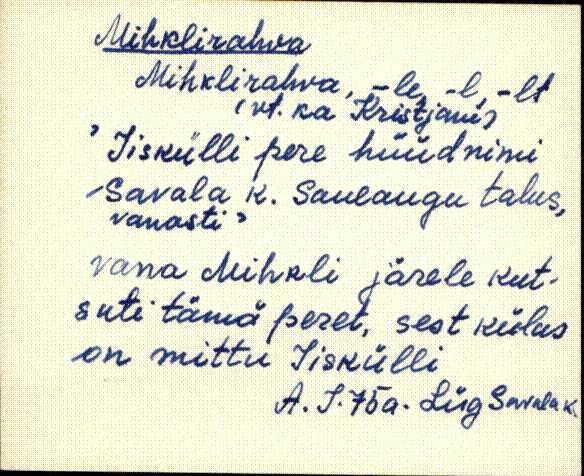 Mihklirahva
Mihklirahva, -le, -l, -lt
(vt. ka Kristjani)
'Iiskülli pere hüüdnimi
Savala k. Saueaugu talus,
vanasti'
vana Mihkli järele kut-
suti tämä peret, sest külas
on mittu Iiskülli
A. I. 75a. Lüg Savala k.